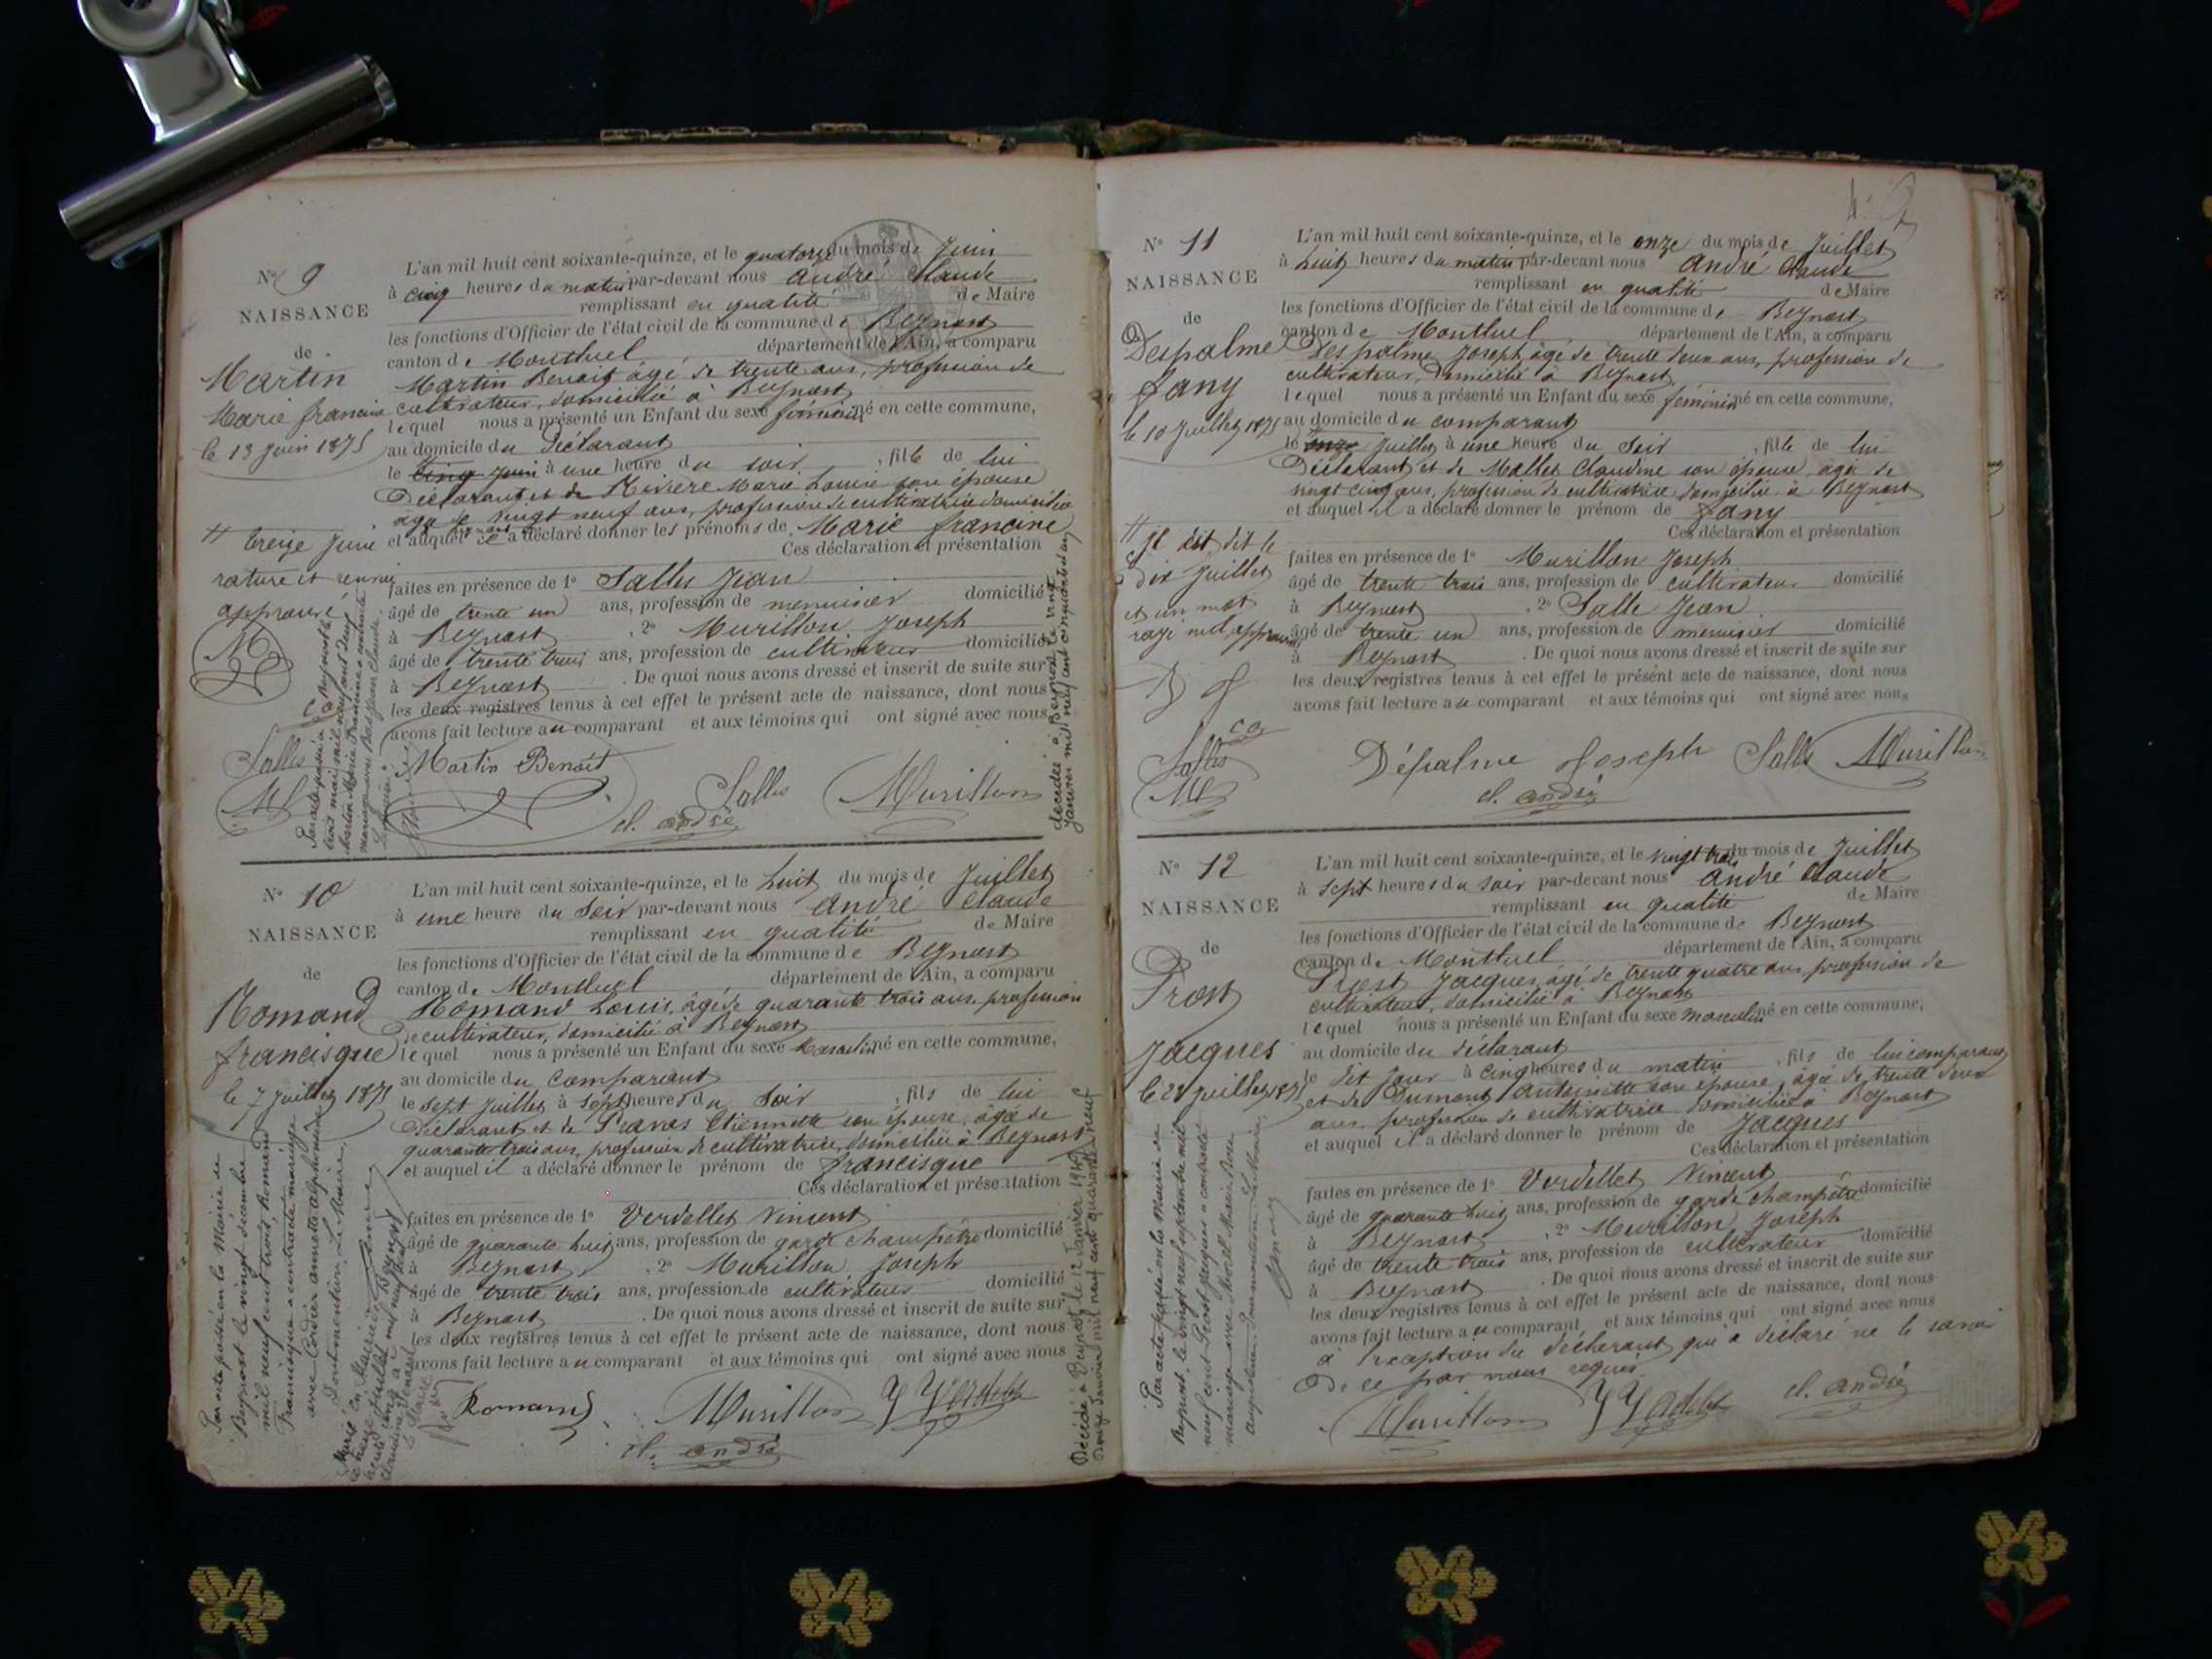 N° 9
NAISSANCE
de
Martin
Marie francine
le 13 Juin 1875
L'an mil huit cent soixante-quinze, et le quatorze du mois de Juin
à cinq heures du matin par-devant nous André Claude
remplissant en qualité de Maire
les fonctions d'Officier de l'état civil de la commune de Beynost
canton de Montluel département de l'Ain, a comparu
Martin Benoit âgé de trente ans, profession de
cultivateur, domicilié à Beynost
lequel nous a présenté un Enfant du sexe féminin né en cette commune,
au domicile du Déclarant
le cinq Juin à une heure du soir, fille de lui
Déclarant et de Rivière Marie Louise son épouse
agée de vingt neuf ans, profession de cultivatrice domiciliée
et auquel il a déclaré donner les prénoms de Marie francine
Ces déclaration et présentation
faites en présence de 1° Salles Jean
âgé de trente un ans, profession de menuisier domicilié
à Beynost, 2° Murillon Joseph
âgé de trente trois ans, profession de cultivateur domicilié
à Beynost. De quoi nous avons dressé et inscrit de suite sur
les deux registres tenus à cet effet le présent acte de naissance, dont nous
avons fait lecture au comparant et aux témoins qui ont signé avec nous
Martin Benoît
Salles Murillon
cl. andré
treize Juin
rature et renvoi
approuvé
M
Salles
M
Par acte passé à Beynost le
trois mai mil neuf cent
Martin Marie Francine a contracté
mariage avec
décédée à Beynost le vingt
Janvier mil neuf cent cinquante
N° 10
NAISSANCE
de
Romand
francisque
le 7 Juillet 1875
L'an mil huit cent soixante-quinze, et le huit du mois de Juillet
à une heure du Soir par-devant nous André Claude
remplissant en qualité de Maire
les fonctions d'Officier de l'état civil de la commune de Beynost
canton de Montluel département de l'Ain, a comparu
Romand Louis, âgé de quarante trois ans, profession
de cultivateur, domicilié à Beynost
lequel nous a présenté un Enfant du sexe Masculin né en cette commune,
au domicile du Comparant
le sept Juillet à Sept heures du Soir, fils de lui
Déclarant et de Etiennette son épouse, âgée de
quarante trois ans, profession de cultivatrice, domiciliée à Beynost
et auquel il a déclaré donner le prénom de francisque
Ces déclaration et présentation
faites en présence de 1° Verdellet Vincent
âgé de quarante huit ans, profession de garde champêtre domicilié
à Beynost, 2° Murillon Joseph
âgé de trente trois ans, profession de cultivateur domicilié
à Beynost. De quoi nous avons dressé et inscrit de suite sur
les deux registres tenus à cet effet le présent acte de naissance, dont nous
avons fait lecture au comparant et aux témoins qui ont signé avec nous
Romand Murillon
cl. andré
Par acte passé en la Mairie de
Beynost le vingt décembre
mil neuf cent trois, Romand
Francisque a contracté mariage
avec Cordier
Dont mention, Le Maire
Décédé à Beynost, le 12 Janvier 1949
Douze Janvier mil neuf cent quarante neuf
N° 11
NAISSANCE
de
Despalme
fany
le 10 Juillet 1875
L'an mil huit cent soixante-quinze, et le onze du mois de Juillet
à huit heures du matin par-devant nous André Claude
remplissant en qualité de Maire
les fonctions d'Officier de l'état civil de la commune de Beynost
canton de Montluel département de l'Ain, a comparu
Despalme Joseph, âgé de trente deux ans, profession de
cultivateur, domicilié à Beynost
lequel nous a présenté un Enfant du sexe féminin né en cette commune,
au domicile du comparant
le onze Juillet à une heure du Soir, fille de lui
Déclarant et de Mallet Claudine son épouse, agée de
vingt cinq ans, profession de cultivatrice domiciliée à Beynost
et auquel il a déclaré donner le prénom de fany
Ces déclaration et présentation
faites en présence de 1° Murillon Joseph
âgé de trente trois ans, profession de cultivateur domicilié
à Beynost, 2° Salle Jean
âgé de trente un ans, profession de menuisier domicilié
à Beynost. De quoi nous avons dressé et inscrit de suite sur
les deux registres tenus à cet effet le présent acte de naissance, dont nous
avons fait lecture au comparant et aux témoins qui ont signé avec nous
Dépalme Joseph Salles Murillon
cl. andré
il est dit le
dix Juillet
et un mot
rayé nul, approuvé
ca
Salles
M
N° 12
NAISSANCE
de
Prost
Jacques
L'an mil huit cent soixante-quinze, et le vingt trois du mois de Juillet
à sept heures du soir par-devant nous André Claude
remplissant en qualité de Maire
les fonctions d'Officier de l'état civil de la commune de Beynost
canton de Montluel département de l'Ain, a comparu
Prost Jacques, âgé de trente quatre ans, profession de
cultivateur, domicilié à Beynost
lequel nous a présenté un Enfant du sexe masculin né en cette commune,
au domicile du déclarant
le dit jour à cinq heures du matin, fils de lui comparant
et de Dumont Antoinette son épouse, âgée de trente deux
ans, profession de cultivatrice domiciliée à Beynost
et auquel il a déclaré donner le prénom de Jacques
Ces déclaration et présentation
faites en présence de 1° Verdellet Vincent
âgé de quarante huit ans, profession de garde champêtre domicilié
à Beynost, 2° Murillon Joseph
âgé de trente trois ans, profession de cultivateur domicilié
à Beynost. De quoi nous avons dressé et inscrit de suite sur
les deux registres tenus à cet effet le présent acte de naissance, dont nous
avons fait lecture au comparant et aux témoins qui ont signé avec nous
à l'exception du déclarant qui a déclaré ne le savoir
De ce par nous requis
Murillon cl. andré
Par acte passé en la Mairie de
Beynost, le vingt neuf septembre mil
neuf cent Prost Jacques a contracté
mariage avec